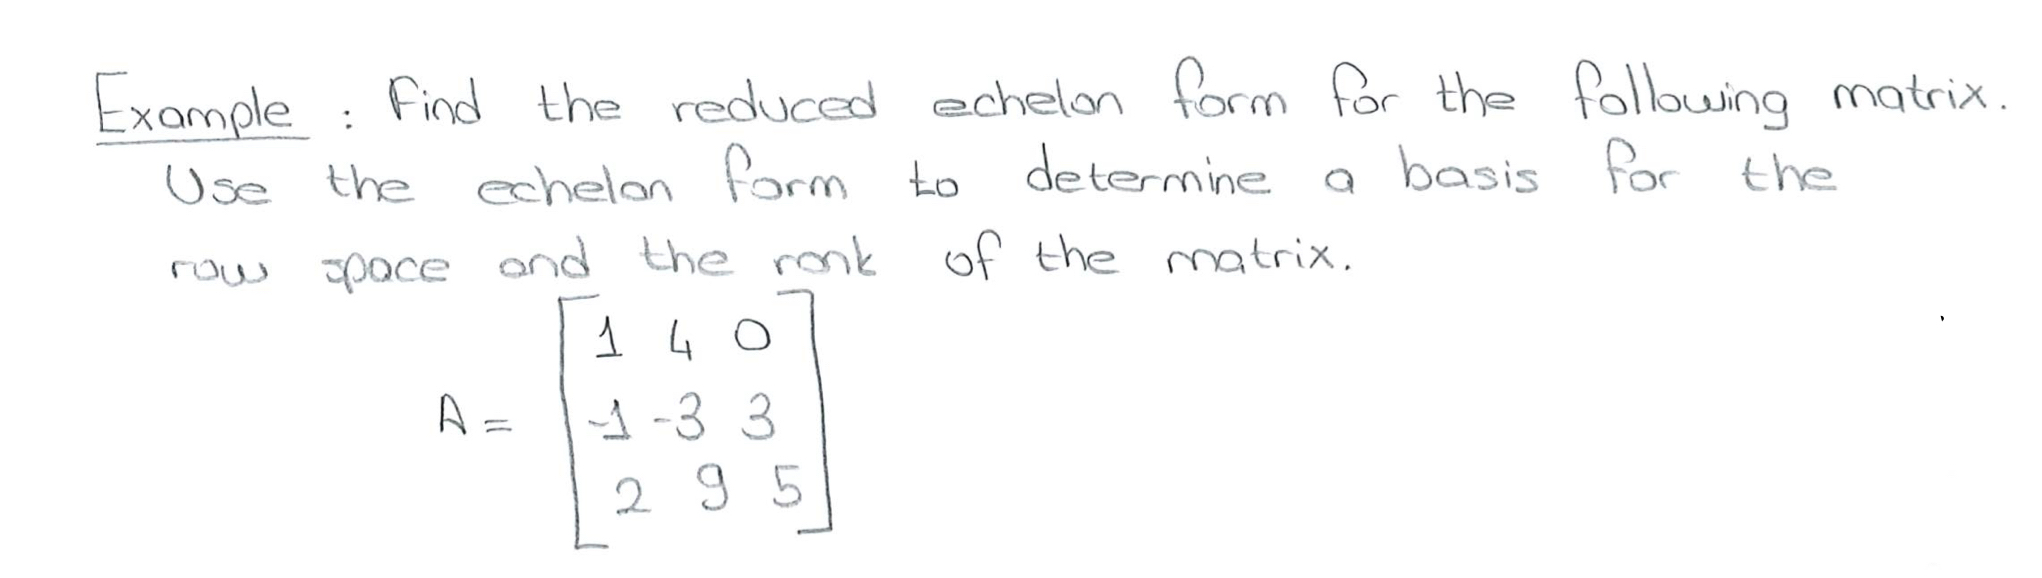 Example : Find the reduced echelon form for the following matrix.
Use the echelon form to determine a basis for the
row space and the rank of the matrix.
1 4 0
A = -1 -3 3
2 9 5